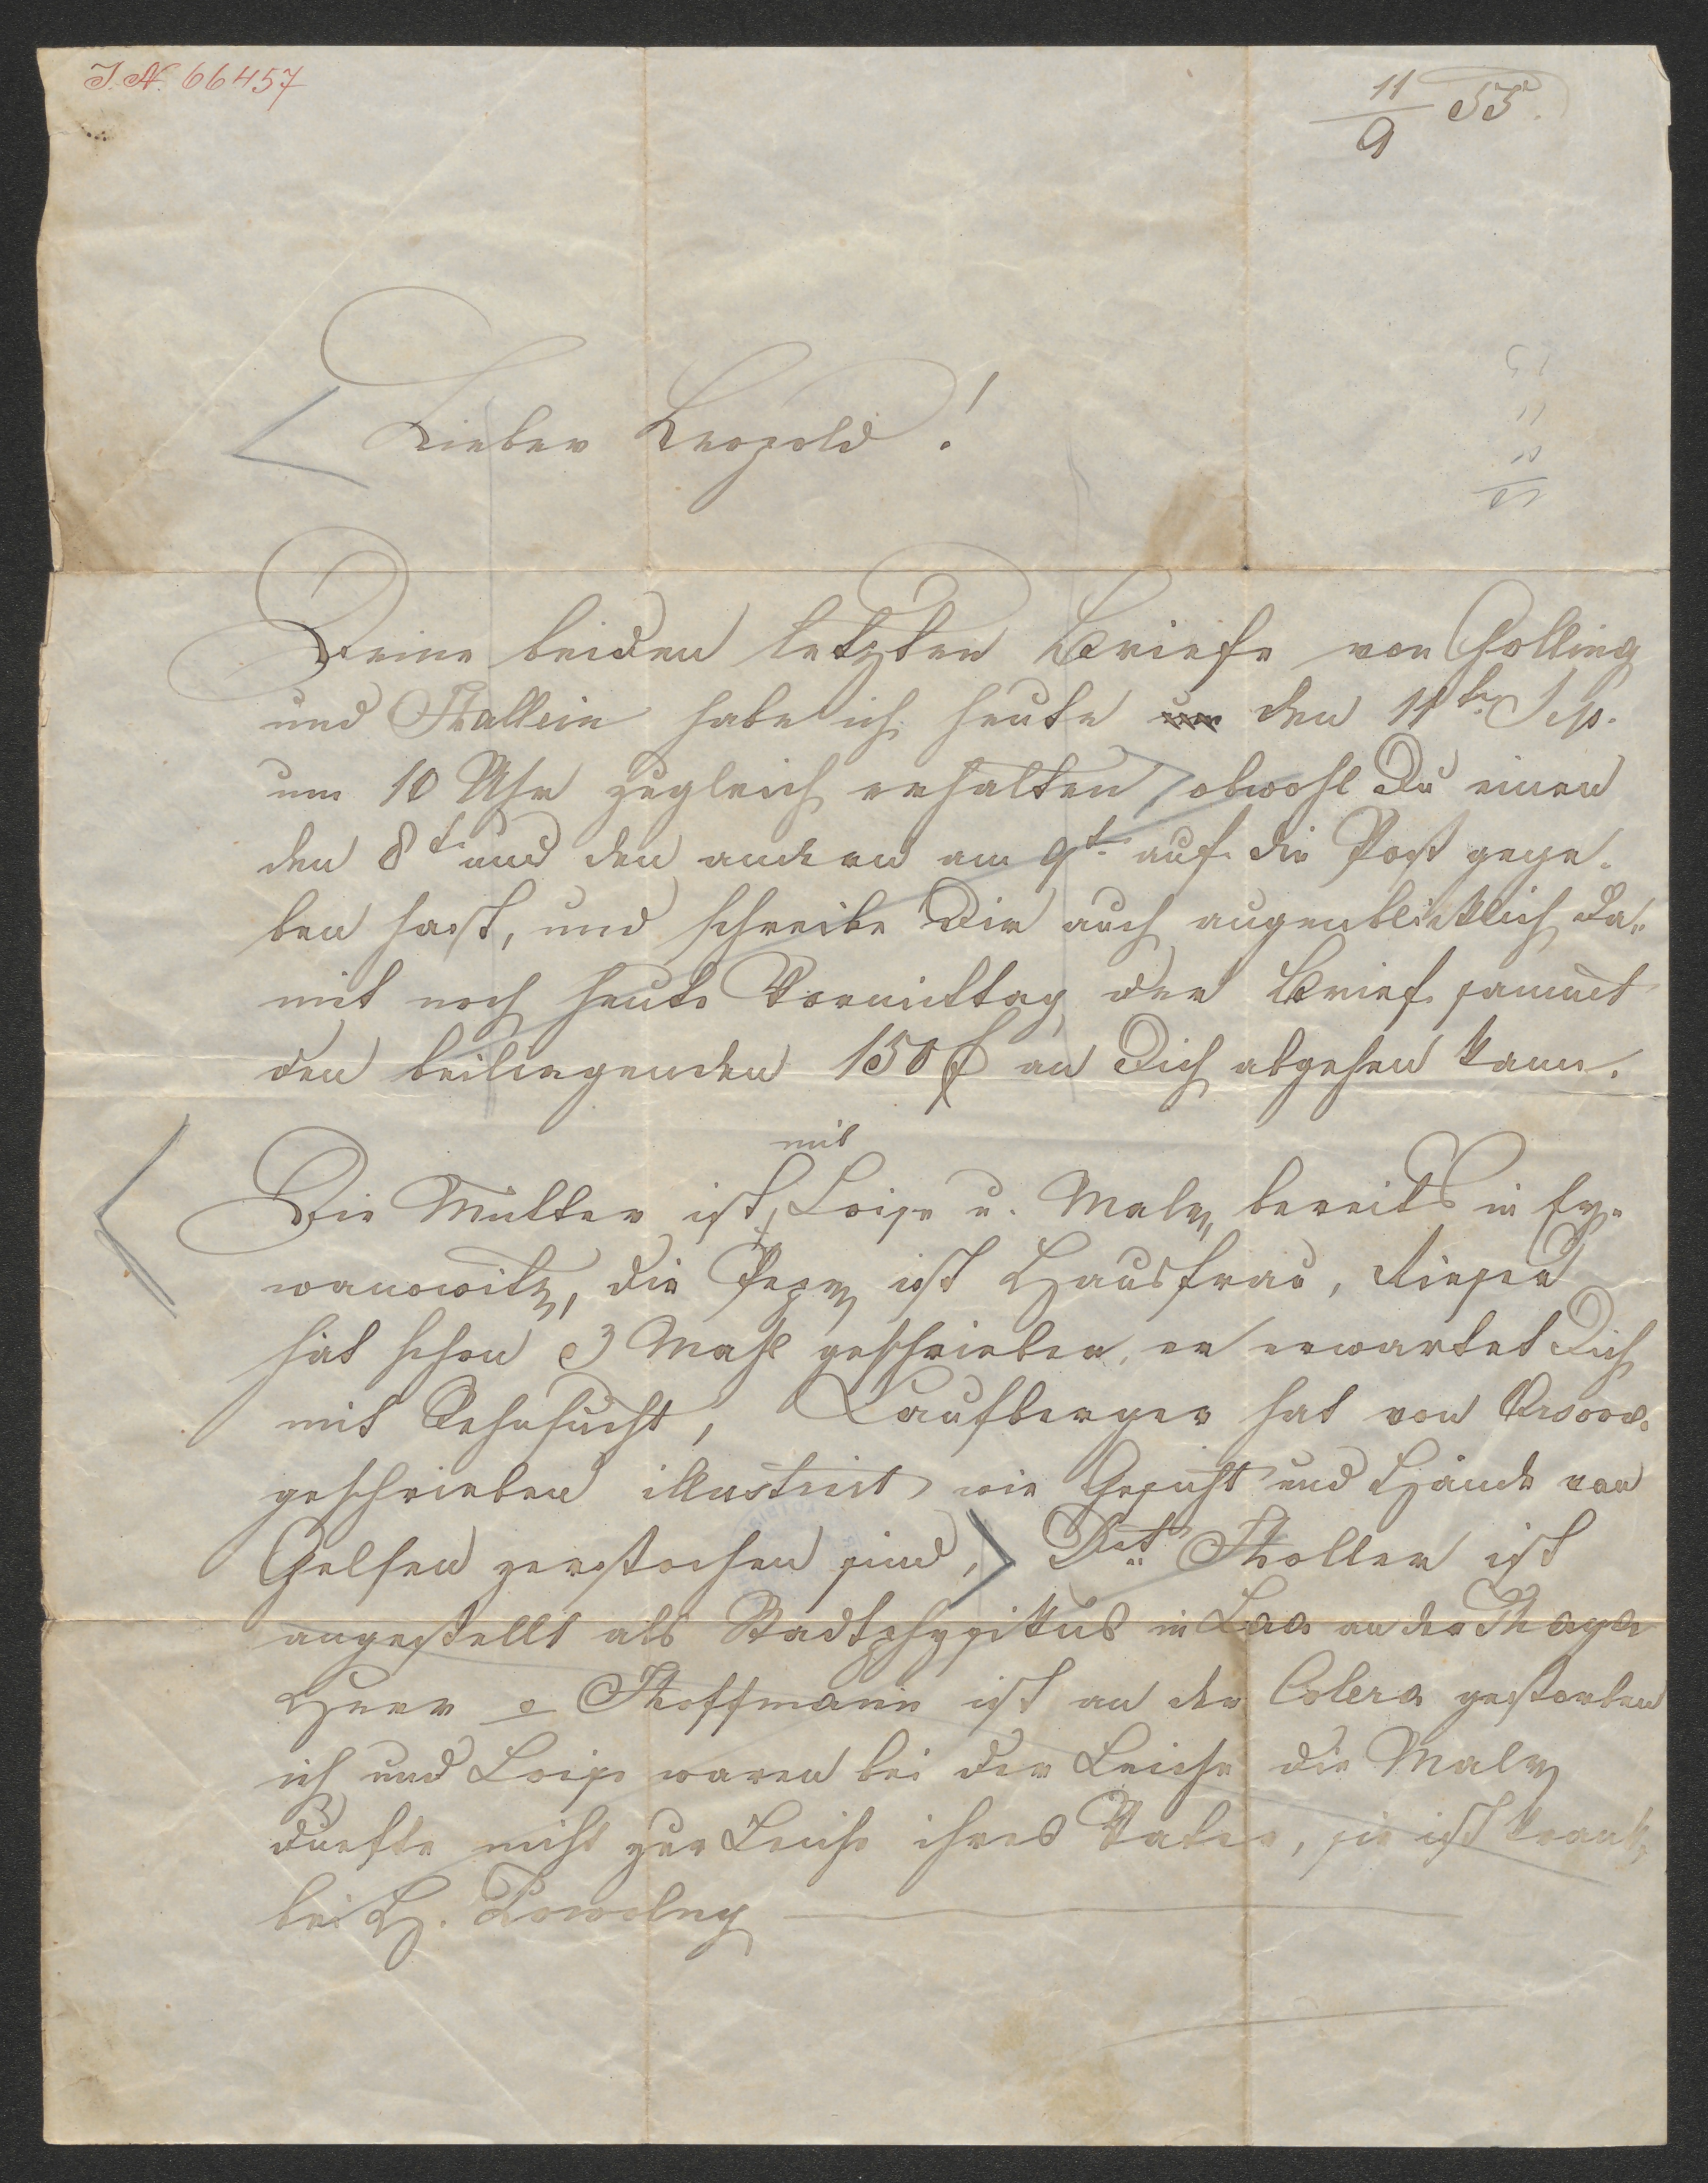 I. N. 66457
11/9 55.
Lieber Leopold!
Deine beiden letzten Briefe von Golling
und Hallein habe ich heute den 11t. Sep.
um 10 Uhr zugleich erhalten, obwohl Du einen
den 8t. und den andern am 9t. auf die Post gege-
ben hast, und schreibe Dir auch augenblicklich da-
mit noch heute Vormittag der Brief sammt
den beiliegenden 150 f an Dich abgehen kann.
mit
Die Mutter ist, Loise u. Maly, bereits in Ey-
wanowitz, die Pepy ist Hausfrau,
hat schon 3 Mahl geschrieben, er erwartet Dich
mit Sehnsucht, Laufberger hat von
geschrieben illustrirt wie Gesicht und Hände von
Gelsen zerstochen sind, Holler ist
angestellt als Stadtphysikus in Laa an der Thaya
Herr v Hoffmann ist an der Colera gestorben
ich und Loise waren bei der Leiche die Maly
durfte nicht zur Leiche ihres Vater, sie ist krank,
bei H. Powolny